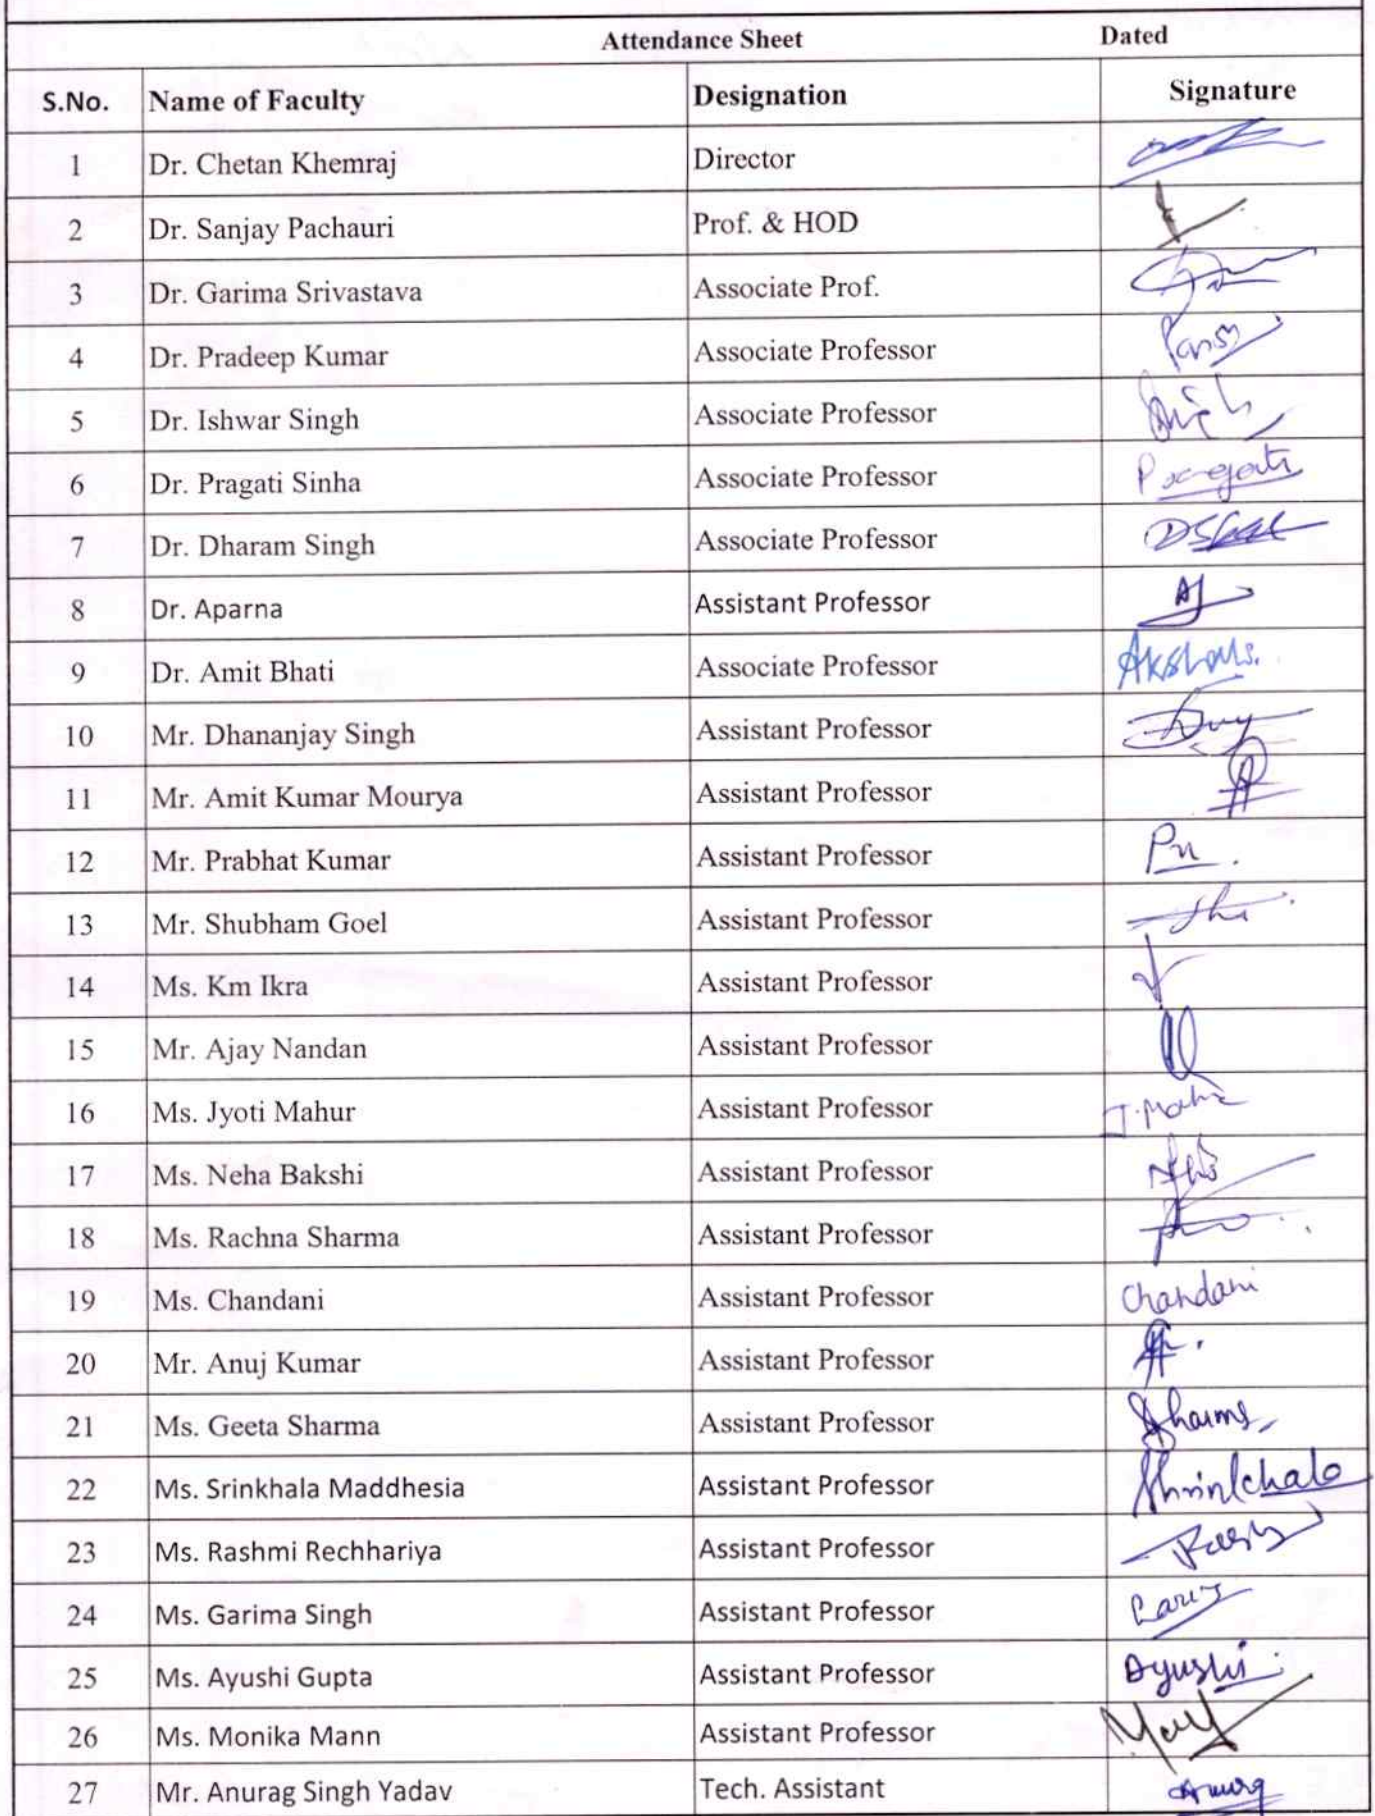 Attendance Sheet Dated
S.No. Name of Faculty Designation Signature
1 Dr. Chetan Khemraj Director
2 Dr. Sanjay Pachauri Prof. & HOD
3 Dr. Garima Srivastava Associate Prof.
4 Dr. Pradeep Kumar Associate Professor
5 Dr. Ishwar Singh Associate Professor
6 Dr. Pragati Sinha Associate Professor Pragati
7 Dr. Dharam Singh Associate Professor
8 Dr. Aparna Assistant Professor
9 Dr. Amit Bhati Associate Professor
10 Mr. Dhananjay Singh Assistant Professor
11 Mr. Amit Kumar Mourya Assistant Professor
12 Mr. Prabhat Kumar Assistant Professor
13 Mr. Shubham Goel Assistant Professor
14 Ms. Km Ikra Assistant Professor
15 Mr. Ajay Nandan Assistant Professor
16 Ms. Jyoti Mahur Assistant Professor
17 Ms. Neha Bakshi Assistant Professor
18 Ms. Rachna Sharma Assistant Professor
19 Ms. Chandani Assistant Professor Chandani
20 Mr. Anuj Kumar Assistant Professor
21 Ms. Geeta Sharma Assistant Professor
22 Ms. Srinkhala Maddhesia Assistant Professor
23 Ms. Rashmi Rechhariya Assistant Professor
24 Ms. Garima Singh Assistant Professor
25 Ms. Ayushi Gupta Assistant Professor Ayushi
26 Ms. Monika Mann Assistant Professor
27 Mr. Anurag Singh Yadav Tech. Assistant